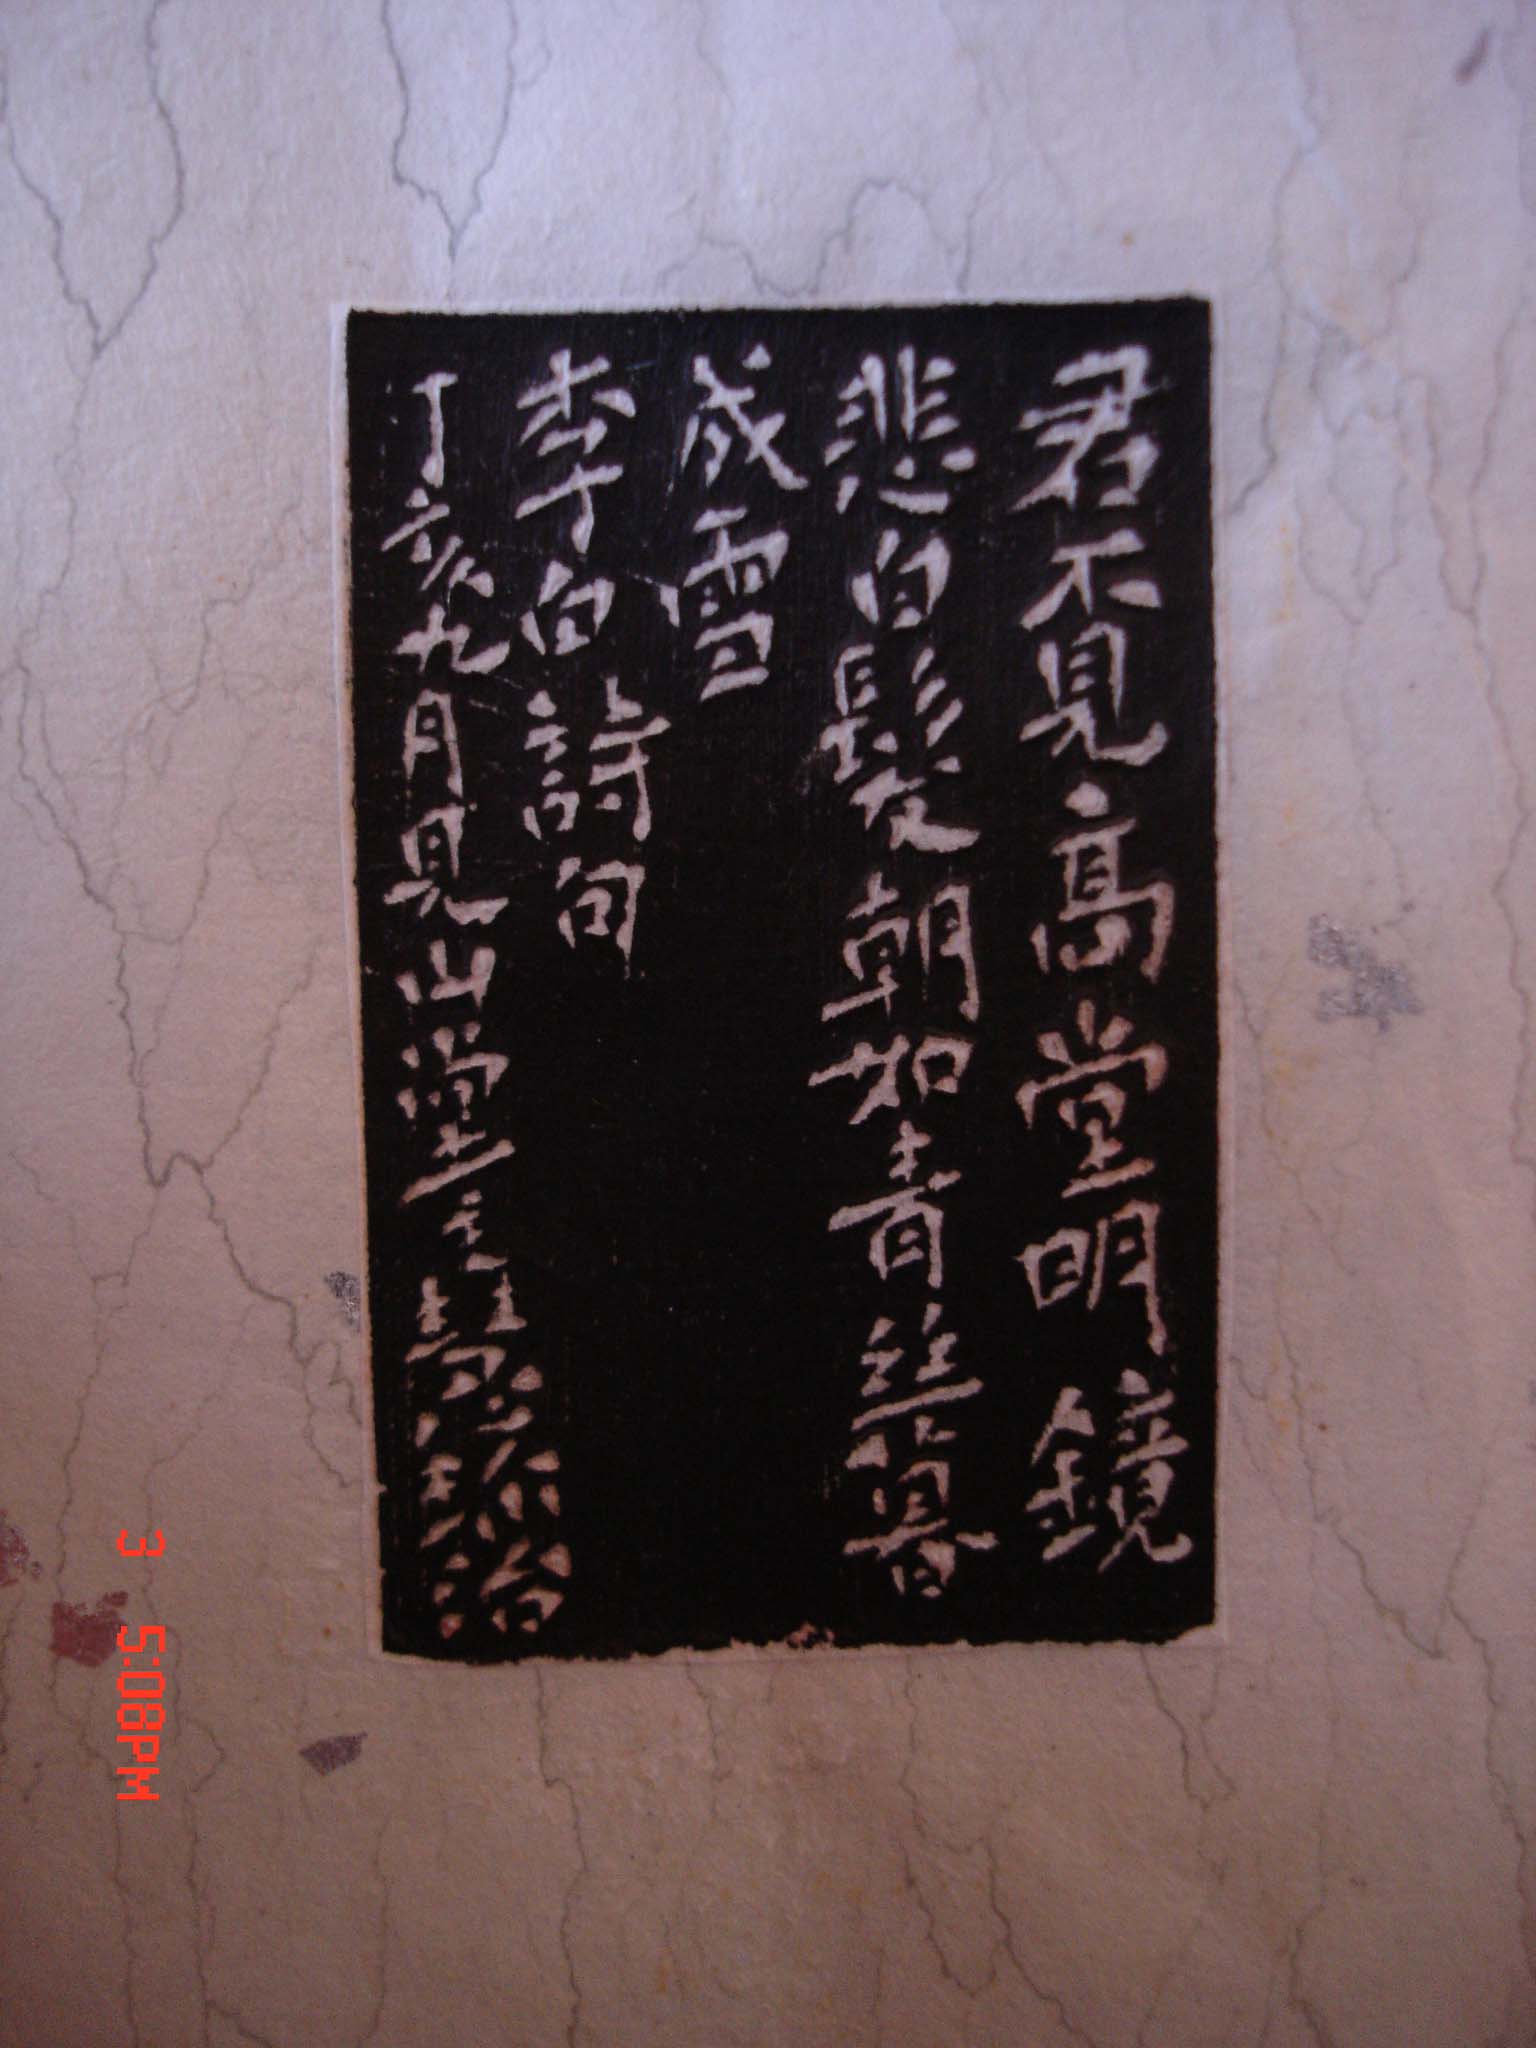 君不見高堂明鏡
悲白髮朝如青絲暮
成雪
李白詩句
丁亥九月見山堂主
3 5:08PM